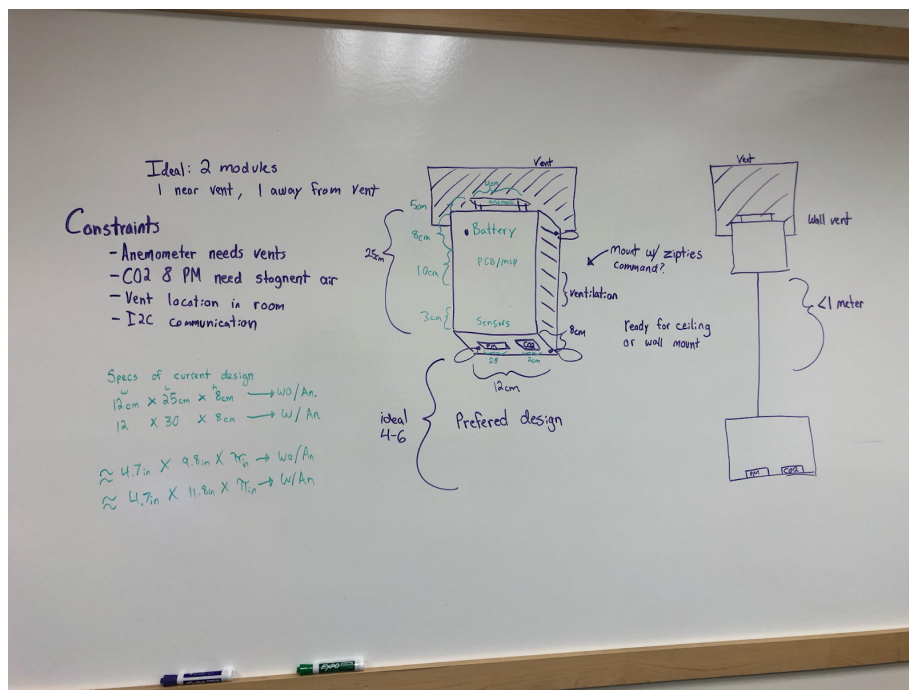 Ideal: 2 modules
1 near vent, 1 away from vent
Constraints
- Anemometer needs vents
- CO2 8 PM need stagnent air
- Vent location in room
- I2C communication
Specs of current design
W L H
12cm × 25cm × 8cm → WO/An.
12 × 30 × 8cm → W/An
≈ 4.7in × 9.8in × πin → WO/An
≈ 4.7in × 11.8in × πin → W/An
Vent
4cm
5cm
8cm
10cm
25cm
3cm
Battery
PCB/MSP
Sensors
PM
CO2
25
2cm
8cm
12cm
ventilation
Mount w/ zipties
command?
ready for ceiling
or wall mount
ideal
4-6
Prefered design
Vent
Wall vent
<1 meter
PM
CO2
EXPO